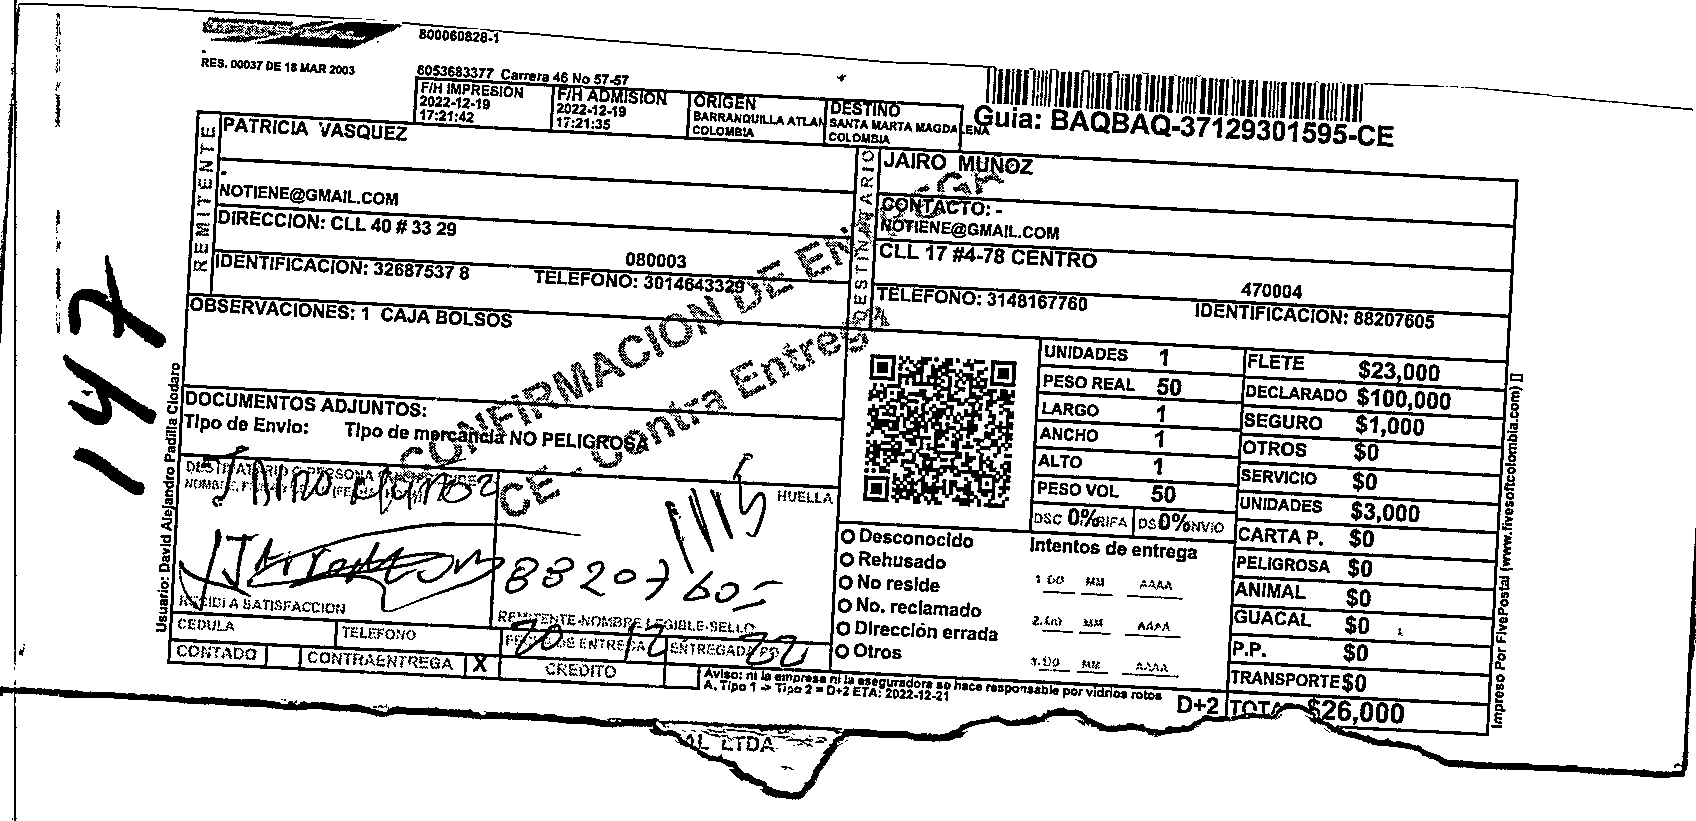 800060828-1
RES. 00037 DE 18 MAR 2003
6053683377 Carrera 46 No 57-57
F/H IMPRESION
2022-12-19
17:21:42
F/H ADMISION
2022-12-19
17:21:35
ORIGEN
BARRANQUILLA ATLAN
COLOMBIA
DESTINO
SANTA MARTA MAGDALENA
COLOMBIA
Guia: BAQBAQ-37129301595-CE
REMITENTE
PATRICIA VASQUEZ
.
NOTIENE@GMAIL.COM
DIRECCION: CLL 40 # 33 29
080003
IDENTIFICACION: 32687537 8
TELEFONO: 3014643329
DESTINATARIO
JAIRO MUNOZ
CONTACTO: -
NOTIENE@GMAIL.COM
CLL 17 #4-78 CENTRO
470004
TELEFONO: 3148167760
IDENTIFICACION: 88207605
OBSERVACIONES: 1 CAJA BOLSOS
CONFIRMACION DE ENTREGA
CE - Contra Entrega
147
DOCUMENTOS ADJUNTOS:
Tipo de Envio: Tipo de mercancia NO PELIGROSA
UNIDADES 1
PESO REAL 50
LARGO 1
ANCHO 1
ALTO 1
PESO VOL 50
DSC 0% RIFA DS 0% NVIO
FLETE $23,000
DECLARADO $100,000
SEGURO $1,000
OTROS $0
SERVICIO $0
UNIDADES $3,000
CARTA P. $0
PELIGROSA $0
ANIMAL $0
GUACAL $0
P.P. $0
TRANSPORTE $0
TOTA $26,000
DESTINATARIO O PERSONA
Jairo Munoz
HUELLA
88207605
RECIDI A SATISFACCION
REMITENTE-NOMBRE LEGIBLE-SELLO
CEDULA
TELEFONO
FECHA DE ENTREGA
20 12 22
CONTADO
CONTRAENTREGA X
CREDITO
Desconocido
Rehusado
No reside
No. reclamado
Dirección errada
Otros
Intentos de entrega
1.DD MM AAAA
2.DD MM AAAA
3.DD MM AAAA
Aviso: ni la empresa ni la aseguradora se hace responsable por vidrios rotos
A. Tipo 1 -> Tipo 2 = D+2 ETA: 2022-12-21
D+2
Usuario: David Alejandro Padilla Clodaro
Impreso Por FivePostal (www.fivesoftcolombia.com)
AL LTDA